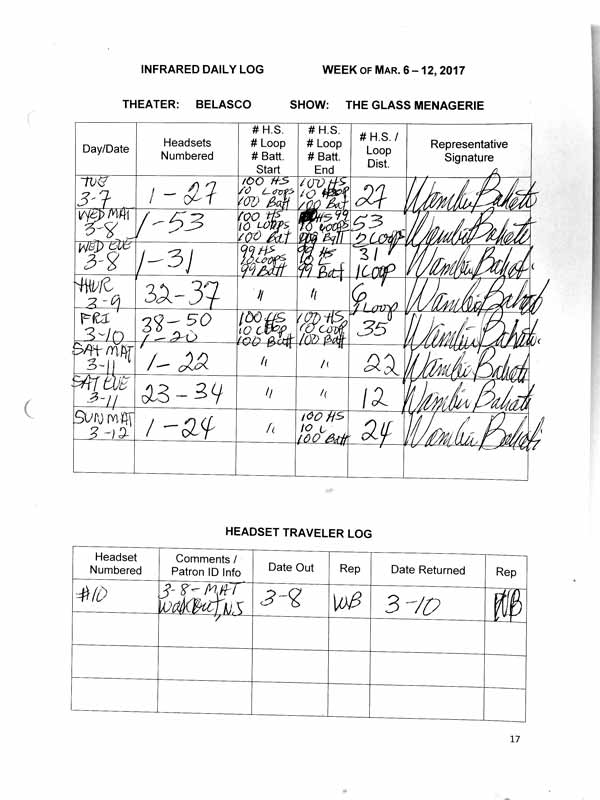 INFRARED DAILY LOG WEEK OF MAR. 6 – 12, 2017
THEATER: BELASCO SHOW: THE GLASS MENAGERIE
Day/Date
Headsets
Numbered
# H.S.
# Loop
# Batt.
Start
# H.S.
# Loop
# Batt.
End
# H.S. /
Loop
Dist.
Representative
Signature
TUE
3-7
1-27
100 HS
10 Loops
100 Batt
100 HS
10 Loop
100 Bat
27
Wambui Bahati
WED MAT
3-8
1-53
100 HS
10 Loops
100 Bat
HS 99
10 Loops
Batt
53
2 Loop
Wambui Bahati
WED EVE
3-8
1-31
99 HS
Loops
99 Batt
HS
10
99 Bat
31
1 Loop
Wambui Bahati
THUR
3-9
32-37
"
"
6
Loop
Wambui Bahati
FRI
3-10
38-50
1-20
100 HS
10 Loop
100 Batt
100 HS
10 Loop
100 Batt
35
Wambui Bahati
SAT MAT
3-11
1-22
"
"
22
Wambui Bahati
SAT EVE
3-11
23-34
"
"
12
Wambui Bahati
SUN MAT
3-12
1-24
"
100 HS
10 L
100 Batt
24
Wambui Bahati
HEADSET TRAVELER LOG
Headset
Numbered
Comments /
Patron ID Info
Date Out
Rep
Date Returned
Rep
#10
3-8-MAT
Walk Out, NJ
3-8
WB
3-10
WB
17